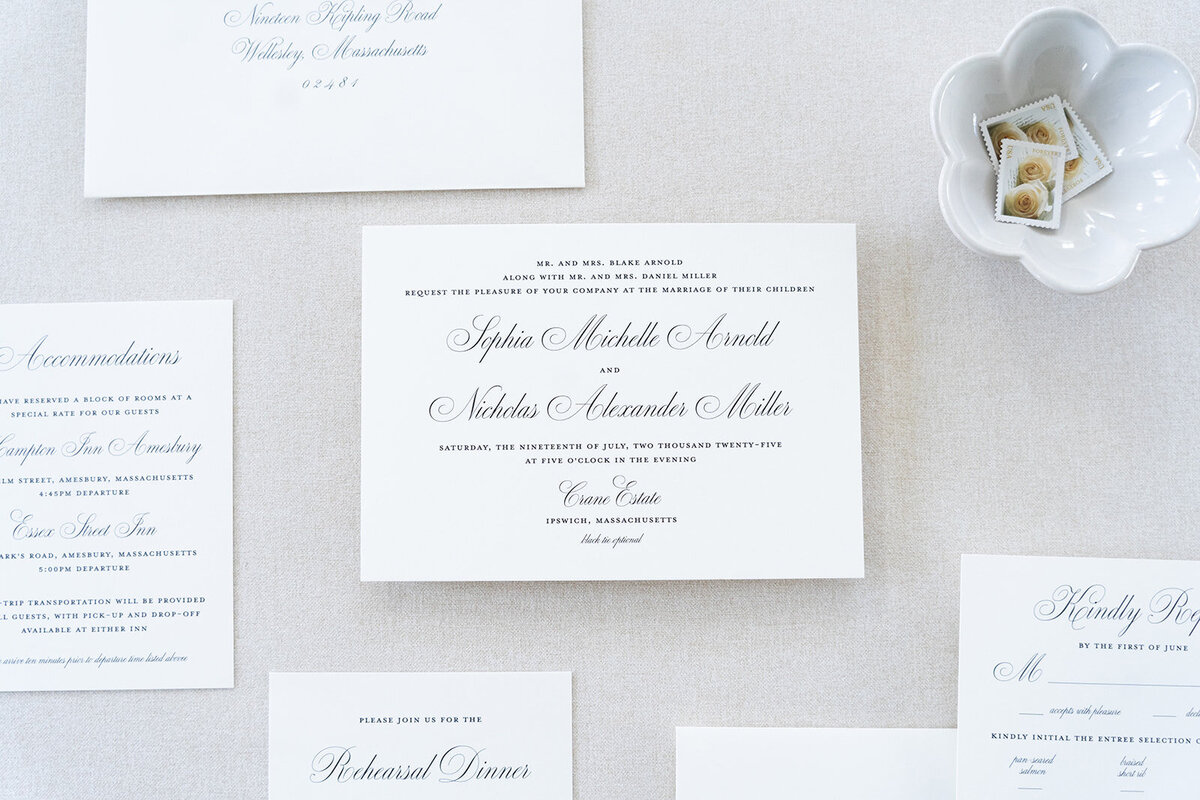 Nineteen Kipling Road
Wellesley, Massachusetts
02481
USA
FOREVER
USA
MR. AND MRS. BLAKE ARNOLD
ALONG WITH MR. AND MRS. DANIEL MILLER
REQUEST THE PLEASURE OF YOUR COMPANY AT THE MARRIAGE OF THEIR CHILDREN
Sophia Michelle Arnold
AND
Nicholas Alexander Miller
SATURDAY, THE NINETEENTH OF JULY, TWO THOUSAND TWENTY-FIVE
AT FIVE O'CLOCK IN THE EVENING
Crane Estate
IPSWICH, MASSACHUSETTS
black tie optional
Accommodations
HAVE RESERVED A BLOCK OF ROOMS AT A
SPECIAL RATE FOR OUR GUESTS
Inn Amesbury
STREET, AMESBURY, MASSACHUSETTS
4:45PM DEPARTURE
Essex Street Inn
ROAD, AMESBURY, MASSACHUSETTS
5:00PM DEPARTURE
-TRIP TRANSPORTATION WILL BE PROVIDED
GUESTS, WITH PICK-UP AND DROP-OFF
AVAILABLE AT EITHER INN
arrive ten minutes prior to departure time listed above
PLEASE JOIN US FOR THE
Rehearsal Dinner
Kindly
BY THE FIRST OF JUNE
M
accepts with pleasure
KINDLY INITIAL THE ENTREE SELECTION
pan-seared braised
salmon short rib